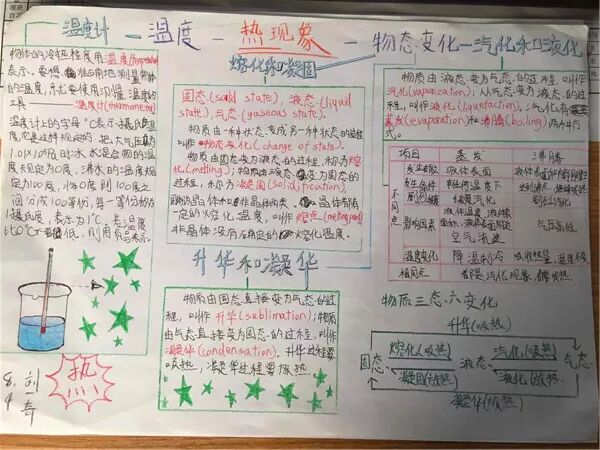 温度计 — 温度 — 热现象 — 物态变化—汽化和液化
物体的冷热程度用温度(temperature)
表示。要想准确地测量物体
的温度，就要使用测量温度的
工具——温度计(thermometer)
温度计上的字母℃表示摄氏温
度，它是这样规定的：把大气压为
1.01×10⁵的冰水混合物的温
度规定为0度，沸水的温度规
定为100度，将0度到100度之
间分成100等份，每一等份称为1
摄氏度，表示为1℃，
比0℃
熔化和凝固
固态(solid state)，液态(liquid
state)，气态(gaseous state)。
物质由一种状态变成另一种状态的过程
叫作物态变化(change of state)。
物质由固态变为液态的过程，称为熔
化(melting)；物质由液态变为固态的
过程，称为凝固(solidification)。
固体分晶体和非晶体两类。晶体都有一
定的熔化温度，叫作熔点(melting point)
非晶体没有确定的熔化温度。
升华和凝华
物质由固态直接变为气态的过
程，叫作升华(sublimation)；物质
由气态直接变为固态的过程，叫作
凝华(condensation)。升华过程要
吸热，凝华过程要放热。
物质由液态变为气态的过程，叫作
汽化(vaporization)；从气态变为液态的过
程，叫作液化(liquefaction)，汽化有
蒸发(evaporation)和沸腾(boiling)两种方
式。
项目 蒸发 沸腾
不同点
发生部位 液体表面 液体表面和内部同时
发生条件 任何温度下 达到沸点，继续吸热
剧烈程度 缓慢汽化 剧烈汽化
影响因素 液体温度，液体
面积，液体表面附近
空气流速 气压高低
温度变化 降温制冷 吸收热量，温度不变
相同点 都是汽化现象，都要吸热
物质三态·六变化
升华(吸热)
固态 熔化(吸热) 液态 汽化(吸热) 气态
凝固(放热) 液化(放热)
凝华(放热)
热
8.4 刘奇